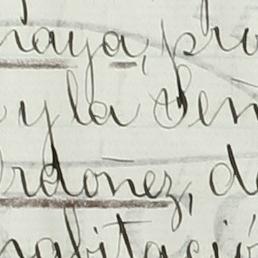 naya, pro
y la Sen
rdonez, de
habitació